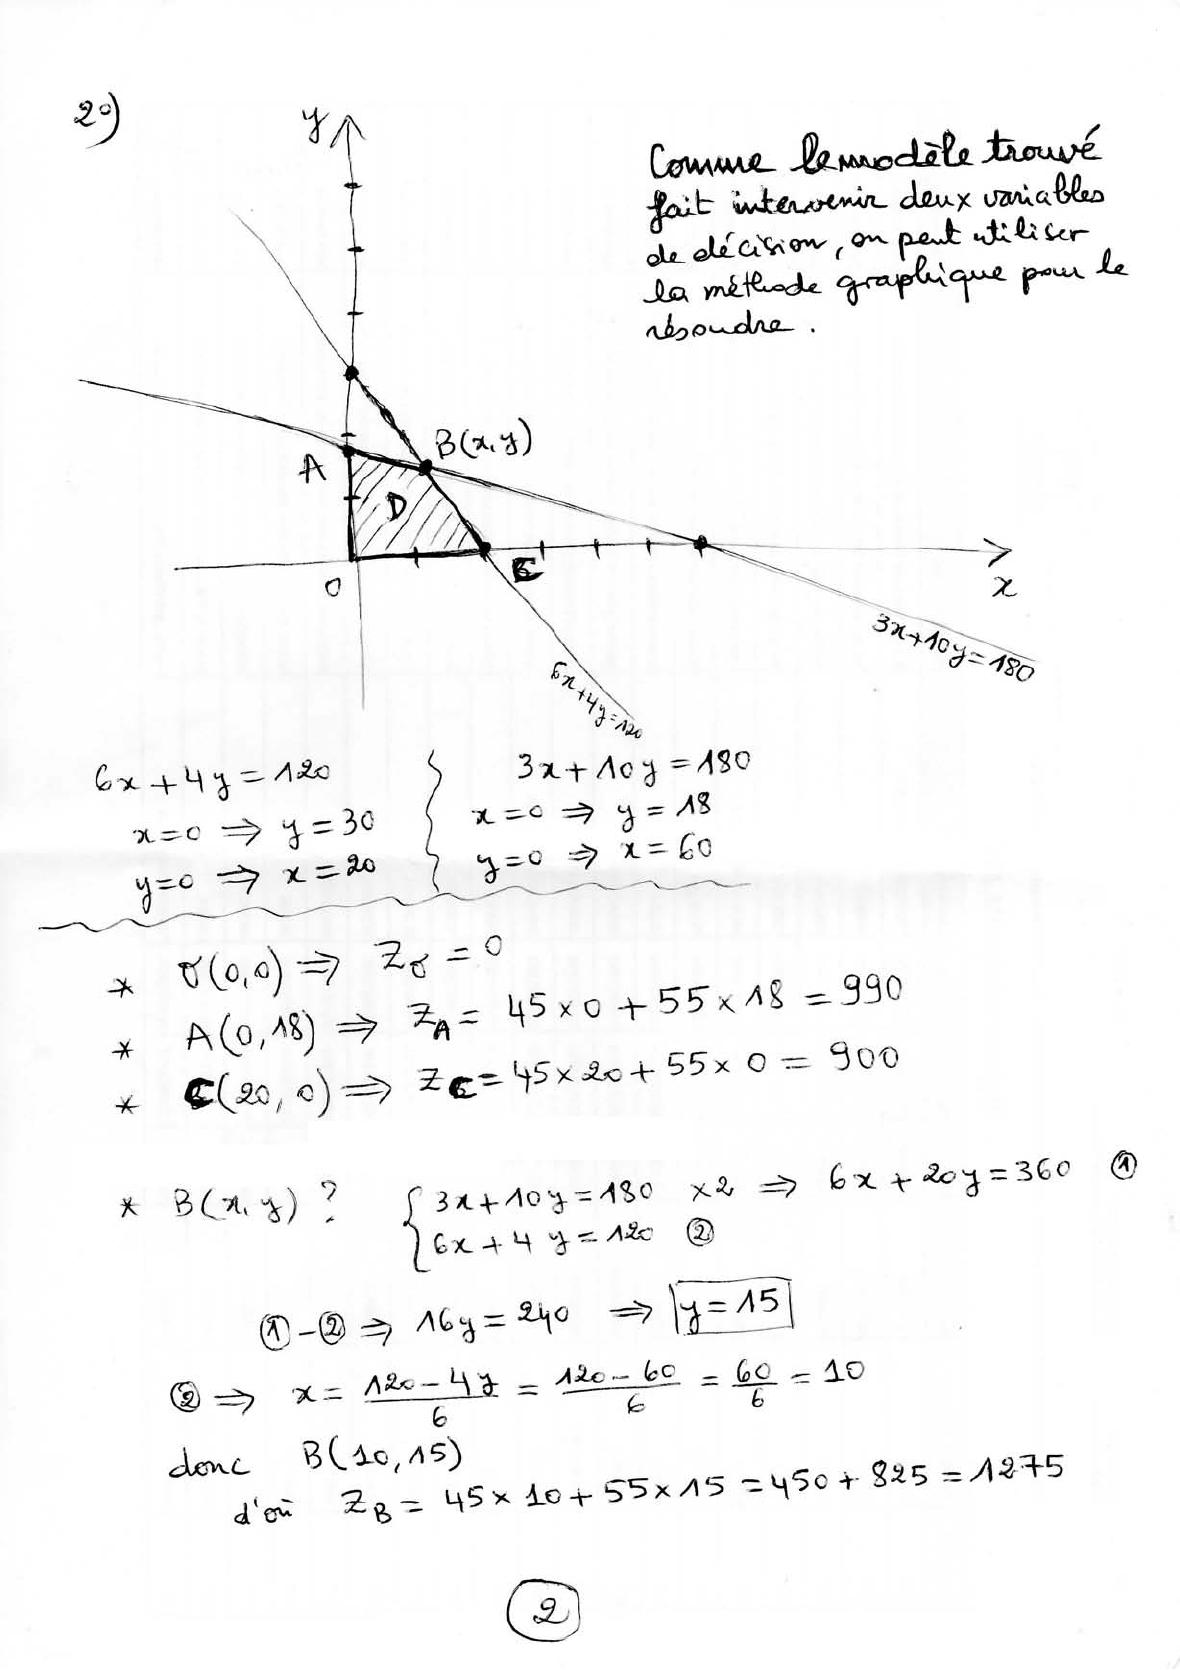 2°)
y
Comme le modèle trouvé
fait intervenir deux variables
de décision, on peut utiliser
la méthode graphique pour le
résoudre.
B(x,y)
A
D
O
C
x
3x+10y=180
6x+4y=120
6x+4y=120
x=0 ⇒ y=30
y=0 ⇒ x=20
3x+10y=180
x=0 ⇒ y=18
y=0 ⇒ x=60
* O(0,0) ⇒ Z_O = 0
* A(0,18) ⇒ Z_A = 45×0+55×18 = 990
* C(20,0) ⇒ Z_C = 45×20+55×0 = 900
* B(x,y) ? { 3x+10y=180 ×2 ⇒ 6x+20y=360 ①
6x+4y=120 ②
①-② ⇒ 16y=240 ⇒ y=15
② ⇒ x = (120-4y)/6 = (120-60)/6 = 60/6 = 10
donc B(10,15)
d'où Z_B = 45×10+55×15 = 450+825 = 1275
2